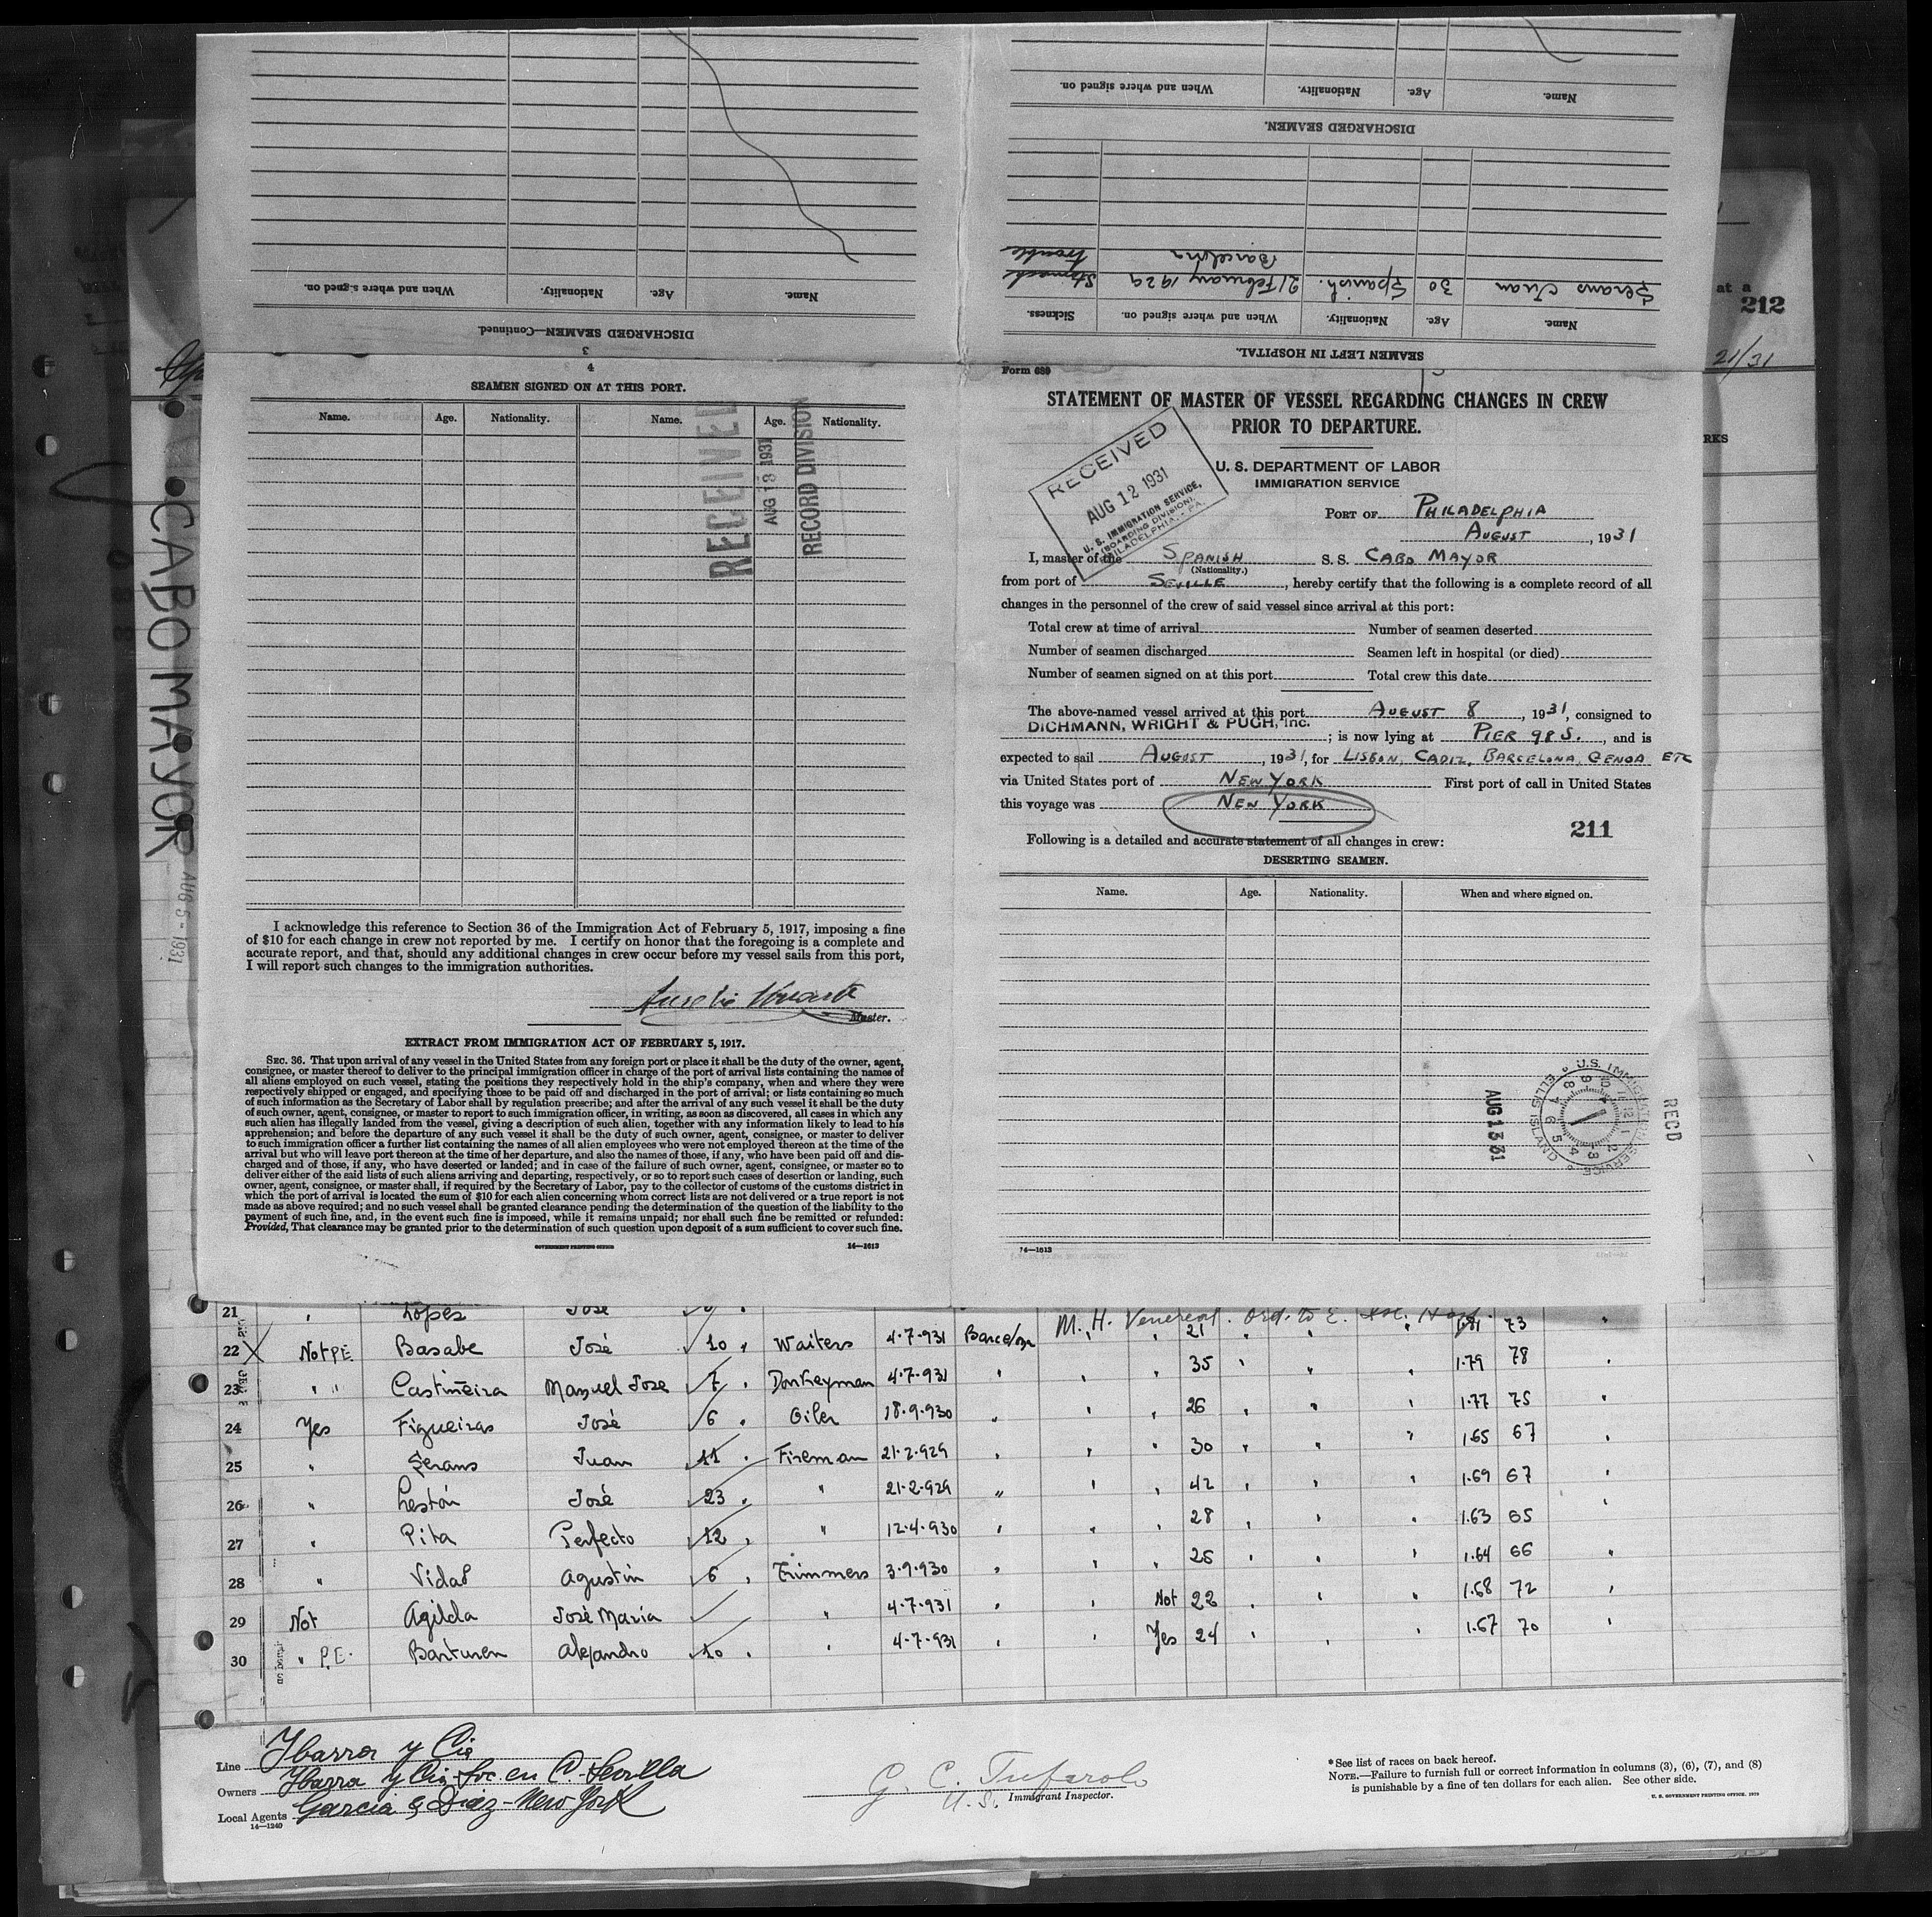 Name. Age. Nationality. When and where signed on.
DISCHARGED SEAMEN—Continued.
3
Name. Age. Nationality. When and where signed on.
DISCHARGED SEAMEN.
Serans Juan 30 Spanish. 21 February 1929 Barcelona Stomach trouble
Name. Age. Nationality. When and where signed on. Sickness.
SEAMEN LEFT IN HOSPITAL.
at a
212
21/31
RKS
CABO MAYOR
AUG 5 - 1931
4
SEAMEN SIGNED ON AT THIS PORT.
Name. Age. Nationality. Name. Age. Nationality.
RECEIVED
AUG 13 1931
RECORD DIVISION
I acknowledge this reference to Section 36 of the Immigration Act of February 5, 1917, imposing a fine
of $10 for each change in crew not reported by me. I certify on honor that the foregoing is a complete and
accurate report, and that, should any additional changes in crew occur before my vessel sails from this port,
I will report such changes to the immigration authorities.
Master.
EXTRACT FROM IMMIGRATION ACT OF FEBRUARY 5, 1917.
SEC. 36. That upon arrival of any vessel in the United States from any foreign port or place it shall be the duty of the owner, agent,
consignee, or master thereof to deliver to the principal immigration officer in charge of the port of arrival lists containing the names of
all aliens employed on such vessel, stating the positions they respectively hold in the ship's company, when and where they were
respectively shipped or engaged, and specifying those to be paid off and discharged in the port of arrival; or lists containing so much
of such information as the Secretary of Labor shall by regulation prescribe; and after the arrival of any such vessel it shall be the duty
of such owner, agent, consignee, or master to report to such immigration officer, in writing, as soon as discovered, all cases in which any
such alien has illegally landed from the vessel, giving a description of such alien, together with any information likely to lead to his
apprehension; and before the departure of any such vessel it shall be the duty of such owner, agent, consignee, or master to deliver
to such immigration officer a further list containing the names of all alien employees who were not employed thereon at the time of the
arrival but who will leave port thereon at the time of her departure, and also the names of those, if any, who have been paid off and dis-
charged and of those, if any, who have deserted or landed; and in case of the failure of such owner, agent, consignee, or master so to
deliver either of the said lists of such aliens arriving and departing, respectively, or so to report such cases of desertion or landing, such
owner, agent, consignee, or master shall, if required by the Secretary of Labor, pay to the collector of customs of the customs district in
which the port of arrival is located the sum of $10 for each alien concerning whom correct lists are not delivered or a true report is not
made as above required; and no such vessel shall be granted clearance pending the determination of the question of the liability to the
payment of such fine, and, in the event such fine is imposed, while it remains unpaid; nor shall such fine be remitted or refunded:
Provided, That clearance may be granted prior to the determination of such question upon deposit of a sum sufficient to cover such fine.
GOVERNMENT PRINTING OFFICE 14—1613
Form 689
STATEMENT OF MASTER OF VESSEL REGARDING CHANGES IN CREW
PRIOR TO DEPARTURE.
U. S. DEPARTMENT OF LABOR
IMMIGRATION SERVICE
RECEIVED
AUG 12 1931
U. S. IMMIGRATION SERVICE,
(BOARDING DIVISION),
PHILADELPHIA, - PA.
PORT OF PHILADELPHIA
AUGUST, 1931
I, master of the SPANISH S. S. CABO MAYOR
(Nationality.)
from port of SEVILLE, hereby certify that the following is a complete record of all
changes in the personnel of the crew of said vessel since arrival at this port:
Total crew at time of arrival Number of seamen deserted
Number of seamen discharged Seamen left in hospital (or died)
Number of seamen signed on at this port Total crew this date
The above-named vessel arrived at this port AUGUST 8, 1931, consigned to
DICHMANN, WRIGHT & PUGH, Inc.; is now lying at PIER 98 S., and is
expected to sail AUGUST, 1931, for LISBON, CADIZ, BARCELONA, GENOA ETC
via United States port of NEW YORK First port of call in United States
this voyage was NEW YORK
211
Following is a detailed and accurate statement of all changes in crew:
DESERTING SEAMEN.
Name. Age. Nationality. When and where signed on.
U.S. IMMIGRATION SERVICE ELLIS ISLAND
AUG 13 31
RECD
14—1613
21 " Lopes José M. H. Venereal. Ord. to E. Isl. Hosp.
22 X Not P.E. Basabe José 10 " Waiters 4-7-931 Barcelona " " 21 " " " 1.81 73 "
23 " " Castiñeira Manuel Jose 7 " Donkeyman 4-7-931 " " " 35 " " " 1.79 78 "
24 Yes Figueiras José 6 " Oiler 18-9-930 " " " 26 " " " 1.77 75 "
25 " Serans Juan 11 " Fireman 21-2-929 " " " 30 " " " 1.65 67 "
26 " Lestón José 23 " " 21-2-929 " " " 42 " " " 1.69 67 "
27 " Pita Perfecto 12 " " 12-4-930 " " " 28 " " " 1.63 65 "
28 " Vidal Agustin 6 " Trimmers 3-9-930 " " " 25 " " " 1.64 66 "
29 Not Agilda José Maria " 4-7-931 " " Not 22 " " " 1.68 72 "
30 " P.E. Barturen Alejandro 10 " " 4-7-931 " " Yes 24 " " " 1.67 70 "
Line Ybarra y Cia
Owners Ybarra y Cia Soc. en C. Sevilla
Local Agents Garcia & Diaz - New York
14—1240
G. C. Tufarolo
U. S. Immigrant Inspector.
* See list of races on back hereof.
NOTE.—Failure to furnish full or correct information in columns (3), (6), (7), and (8)
is punishable by a fine of ten dollars for each alien. See other side.
U. S. GOVERNMENT PRINTING OFFICE: 1929